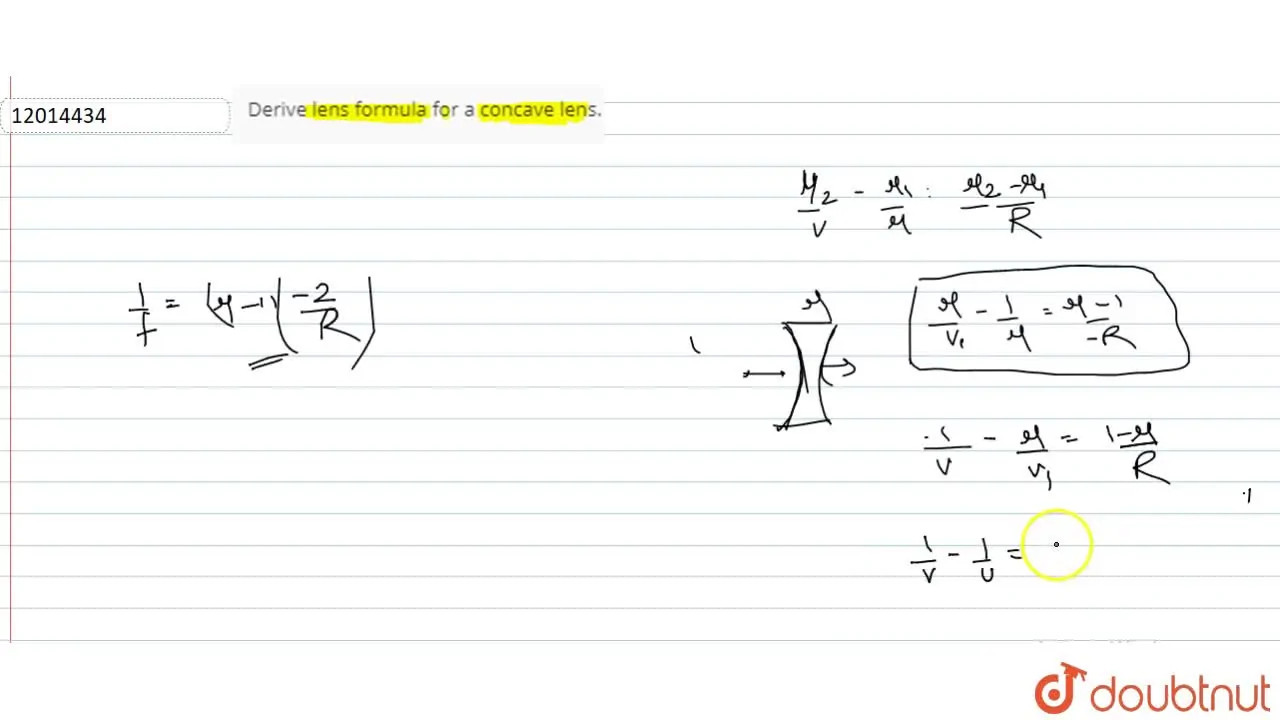 12014434
Derive lens formula for a concave lens.
μ2/v - μ1/u : μ2-μ1/R
1/f = (μ-1)(-2/R)
μ
μ/v1 - 1/u = μ-1/-R
1/v - μ/v1 = 1-μ/R
1/v - 1/u =
doubtnut